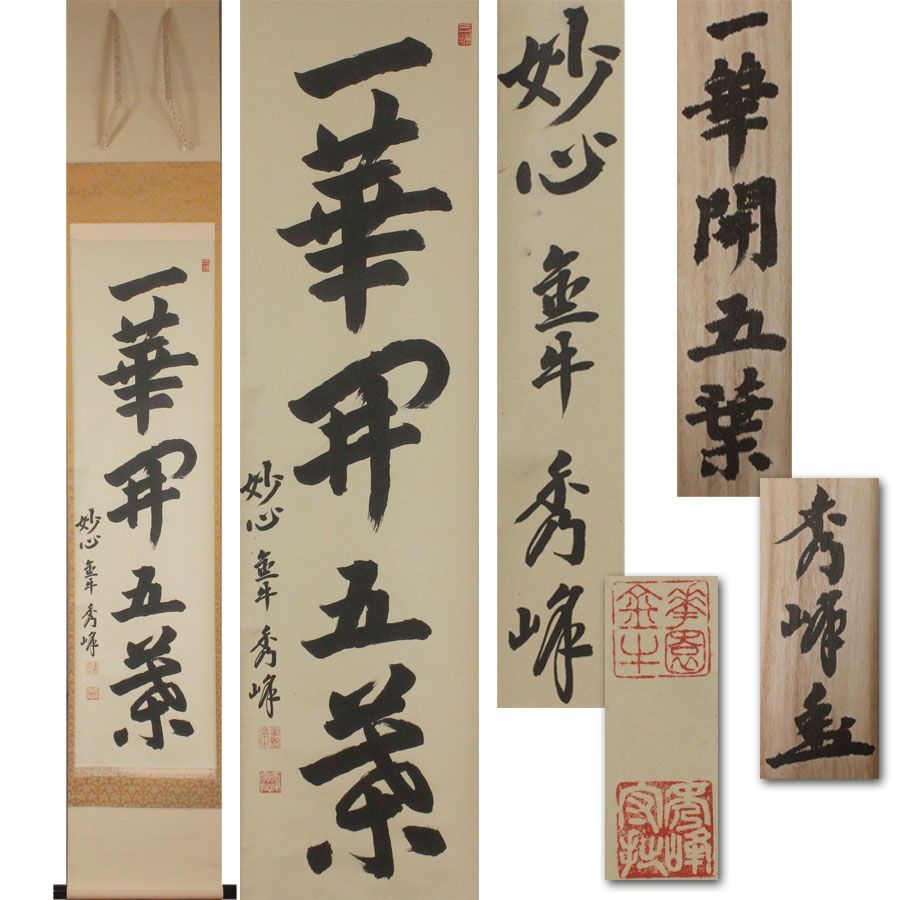 一華開五葉
妙心 金牛 秀峰
一華開五葉
妙心 金牛 秀峰
妙心 金牛 秀峰
一華開五葉
華園
金牛
秀峰
秀峰